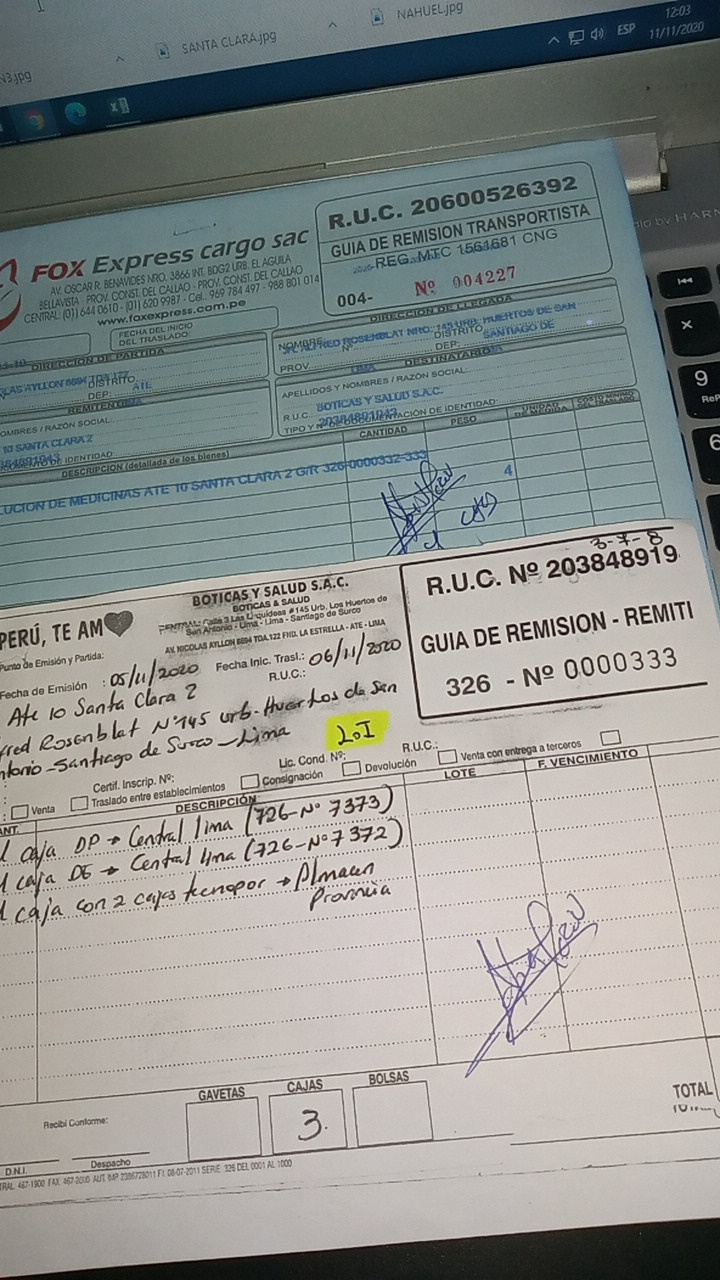 NAHUEL.jpg
SANTA CLARA.jpg
N3.jpg
12:03
ESP
11/11/2020
FOX Express cargo sac
AV. OSCAR R. BENAVIDES NRO. 3866 INT. BDG2 URB. EL AGUILA
BELLAVISTA - PROV. CONST. DEL CALLAO - PROV. CONST. DEL CALLAO
CENTRAL: (01) 644 0610 - (01) 620 9987 - Cel.: 969 784 497 - 988 801 014
www.foxexpress.com.pe
R.U.C. 20600526392
GUIA DE REMISION TRANSPORTISTA
REG. MTC 1561681 CNG
004- Nº 004227
FECHA DEL INICIO
DEL TRASLADO:
DIRECCION DE PARTIDA
DISTRITO:
DEP: ATE
REMITENTE
OMBRES / RAZÓN SOCIAL:
10 SANTA CLARA 2
DE IDENTIDAD
DIRECCION DE LLEGADA
NOMBRE:
ALFRED ROSENBLAT NRO. 145 URB. HUERTOS DE SAN
Nº DISTRITO
PROV. LIMA DEP: SANTIAGO DE
DESTINATARIO
APELLIDOS Y NOMBRES / RAZÓN SOCIAL:
BOTICAS Y SALUD S.A.C.
R.U.C.
TIPO Y Nº DE DOCUMENTACIÓN DE IDENTIDAD:
DESCRIPCIÓN (detallada de los bienes)
CANTIDAD
PESO
LUCION DE MEDICINAS ATE 10 SANTA CLARA 2 G/R 326-0000332-333
4
PERÚ, TE AM
BOTICAS Y SALUD S.A.C.
BOTICAS & SALUD
CENTRAL: Calle 3 Las Orquídeas #145 Urb. Los Huertos de
San Antonio - Lima - Lima - Santiago de Surco
AV. NICOLAS AYLLON 8694 TDA.122 FND. LA ESTRELLA - ATE - LIMA
3-7-8
R.U.C. Nº 203848919
GUIA DE REMISION - REMITI
326 - Nº 0000333
Punto de Emisión y Partida:
Fecha de Emisión : 05/11/2020 Fecha Inic. Trasl.: 06/11/2020
R.U.C.:
Ate 10 Santa Clara 2
fred Rosenblat Nº145 urb. Huertos de San
ntonio - Santiago de Surco - Lima
LOI
Certif. Inscrip. Nº:
Lic. Cond. Nº:
R.U.C.:
Venta
Traslado entre establecimientos
Consignación
Devolución
Venta con entrega a terceros
ANT.
DESCRIPCIÓN
LOTE
F. VENCIMIENTO
1 caja DP → Central lima (726-Nº 7373)
1 caja DE → Central lima (726-Nº 7372)
1 caja con 2 cajas tecnopor → Almacen
Provincia
GAVETAS
CAJAS
BOLSAS
3
TOTAL
Recibí Conforme:
D.N.I.
Despacho
TRAL: 467-1900 FAX: 467-2000 AUT. IMP 2386728011 F.I. 08-07-2011 SERIE: 326 DEL 0001 AL 1000
9
6